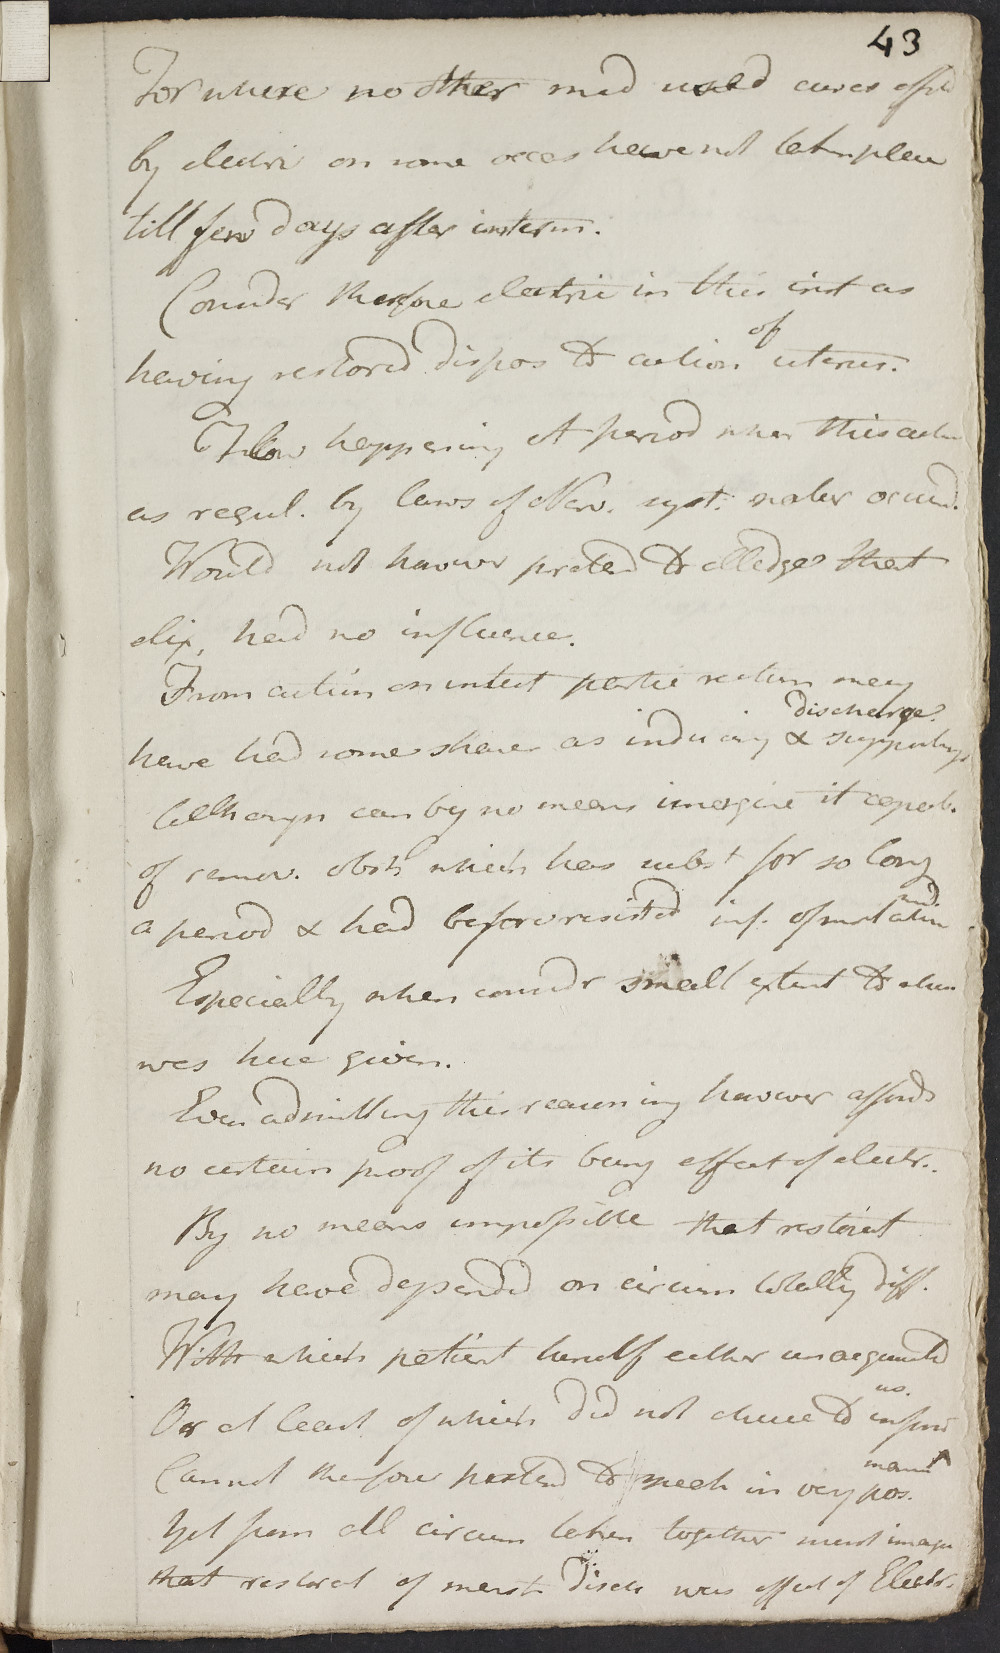 43
For where no other med used cures effd
by electri on some occas have not taken place
till few days after interm.
Consider therefore electric in this inst as
having restored dispos to action of uterus.
Flow happening at period when this action
as regul. by laws of Nerv. syst. naler occurd.
Would not howevr pretend to alledge that
elix, had no influence.
From action on intest partic rectum may
have had some share as inducing & supporting discharge.
Altho can by no means imagine it capab.
of remov. obstn which has subst for so long
a period & had before resisted inf. of
Especially when considr small extent to when
was here given.
Even admitting this reasoning however affords
no certain proof of its being effect of electr..
By no means impossible that restorat
may have depended on circum totally diff.
With which patient herself either unacquainted
Or at least of which did not chuse to inform us.
Cannot therefore pretend to speek in very pos. mannr
Yet from all circum taken together must imagin
that restorat of menst disch was effect of Electr.